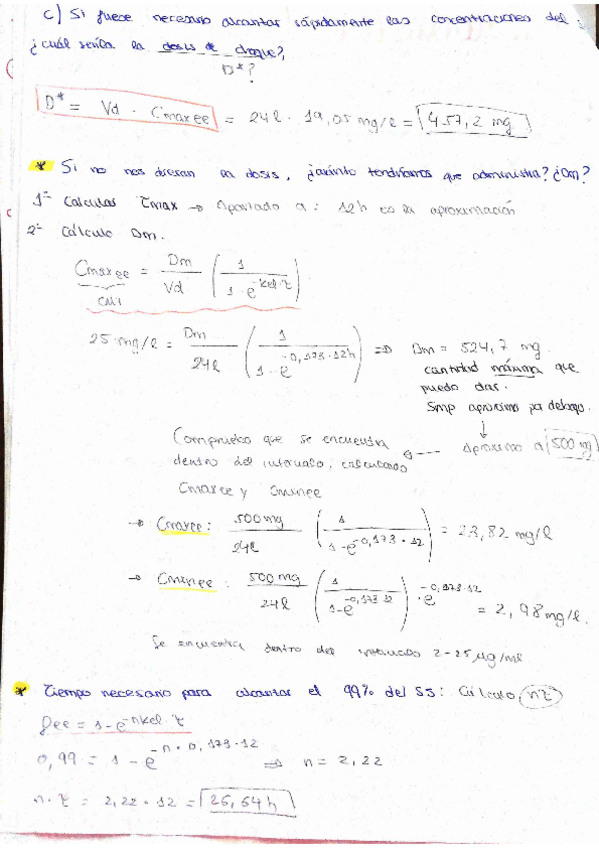 c) Si fuese necesario alcanzar rápidamente las concentraciones del :
¿cuál sería la dosis de choque?,
D*?
D* = Vd · Cmaxee = 24l · 19,05 mg/l = 457,2 mg
* Si no nos diesan la dosis, ¿cuánto tendríamos que administra? ¿Dm?
1º Calculas τmax → Apartado a: 12h es la aproximación
2º Cálculo Dm.
Cmaxee = Dm/Vd (1/(1-e^-kel·τ))
CMT
25 mg/l = Dm/24l (1/(1-e^-0,173·12h)) ⇒ Dm = 524,7 mg.
cantidad máxima que
puedo dar.
Simp aproximo pa debajo.
↓
aproximo a 500 mg
Compruebo que se encuentra
dentro del intervalo, calculando
Cmaxee y Cminee
→ Cmaxee: 500mg/24l (1/(1-e^-0,173·12)) = 23,82 mg/l
→ Cminee: 500mg/24l (1/(1-e^-0,173·12)) · e^-0,173·12 = 2,98 mg/l.
Se encuentra dentro del intervalo 2-25 µg/ml
* Tiempo necesario para alcanzar el 99% del SS: Cálculo nτ
fee = 1-e^-nkel·τ
0,99 = 1 - e^-n·0,173·12 ⇒ n = 2,22
n·τ = 2,22·12 = 26,64h